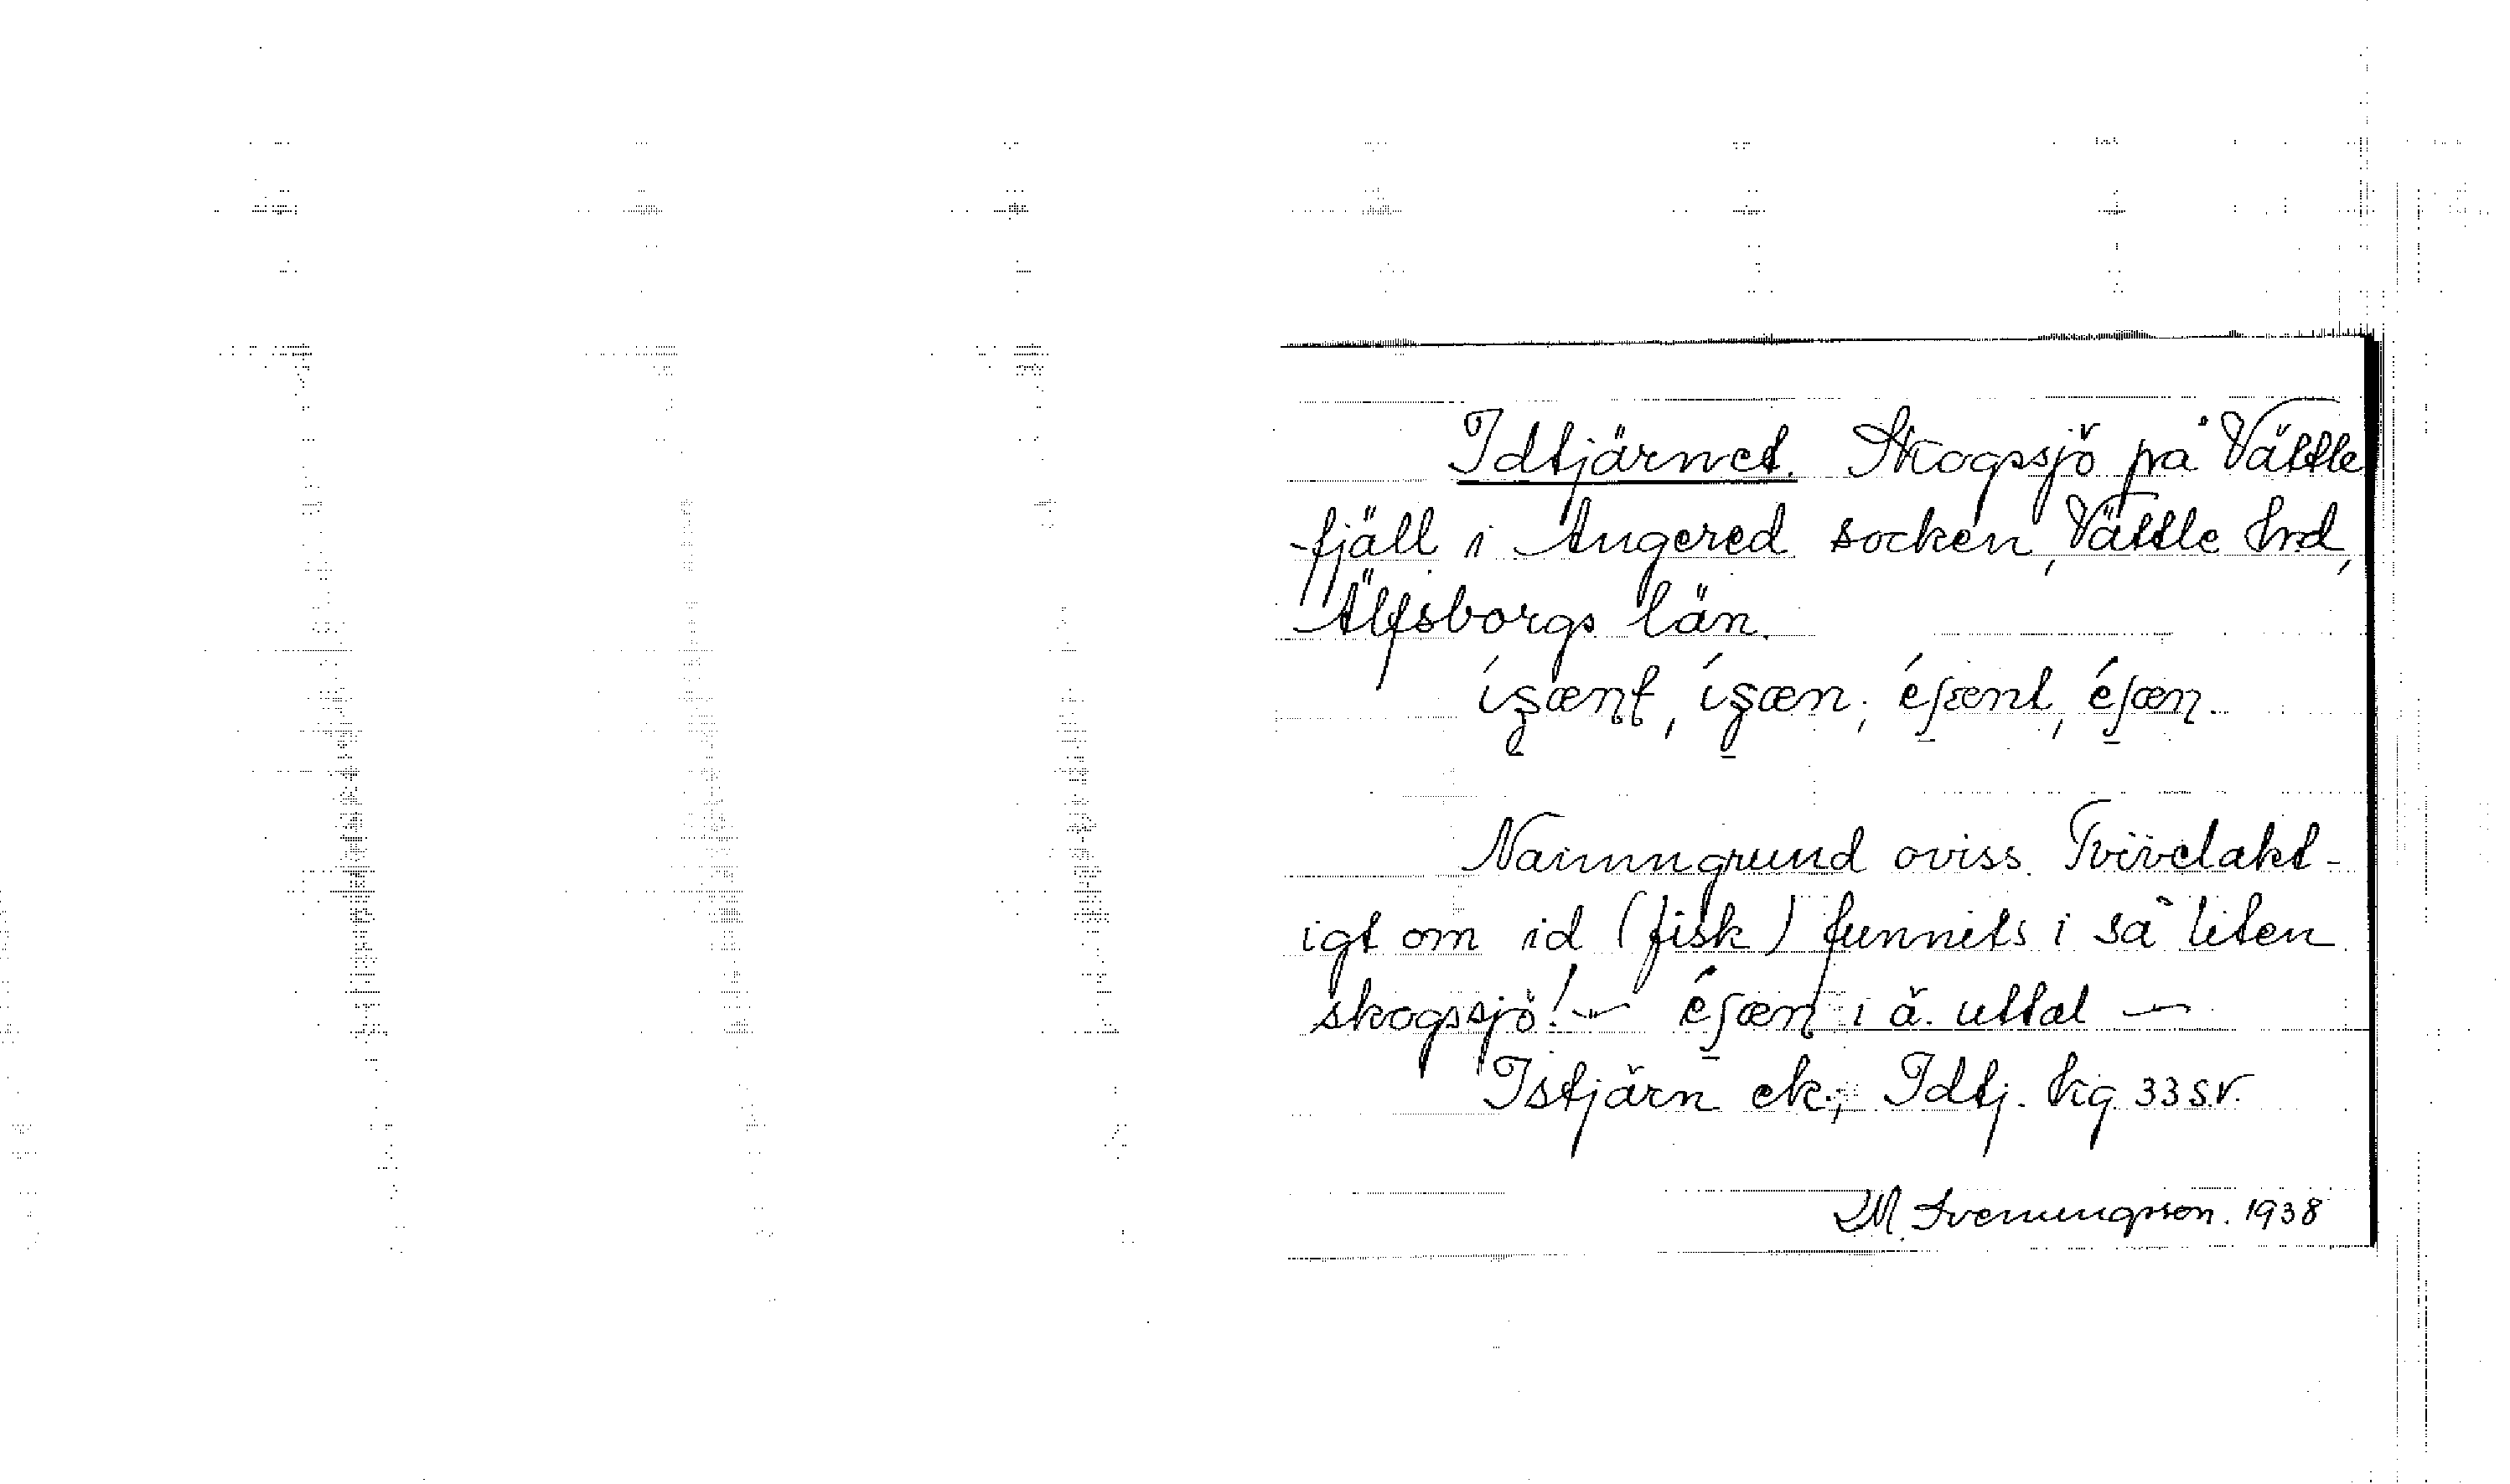 Idtjärnet. Skogssjö på Vättle
-fjäll i Angered socken, Vättle hrd,
Älfsborgs län.
Namngrund oviss. Tvivelakt-
igt om id (fisk) funnits i så liten
skogssjö! — éʃæn i ä. uttal —
Istjärn ek.; Idtj. hig 33 s.v.
M. Svenungsson. 1938